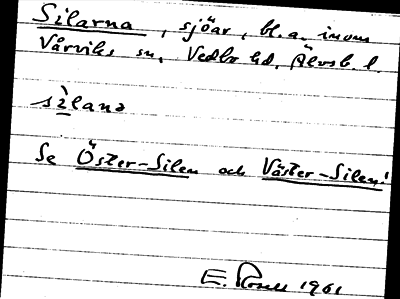 Silarna, sjöar, bl.a. inom
Vårviks sn, Vedbo hd, Älvsb. l.
sìlanə
Se Öster-Silen och Väster-Silen!
E. 1961